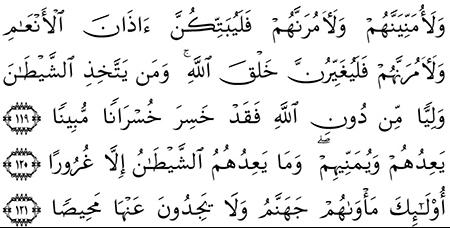 وَلَأُمَنِّيَنَّهُمْ وَلَـَٔامُرَنَّهُمْ فَلَيُبَتِّكُنَّ ءَاذَانَ ٱلْأَنْعَٰمِ
وَلَـَٔامُرَنَّهُمْ فَلَيُغَيِّرُنَّ خَلْقَ ٱللَّهِ ۚ وَمَن يَتَّخِذِ ٱلشَّيْطَٰنَ
وَلِيًّا مِّن دُونِ ٱللَّهِ فَقَدْ خَسِرَ خُسْرَانًا مُّبِينًا ﴿١١٩﴾
يَعِدُهُمْ وَيُمَنِّيهِمْ ۖ وَمَا يَعِدُهُمُ ٱلشَّيْطَٰنُ إِلَّا غُرُورًا ﴿١٢٠﴾
أُو۟لَٰٓئِكَ مَأْوَىٰهُمْ جَهَنَّمُ وَلَا يَجِدُونَ عَنْهَا مَحِيصًا ﴿١٢١﴾